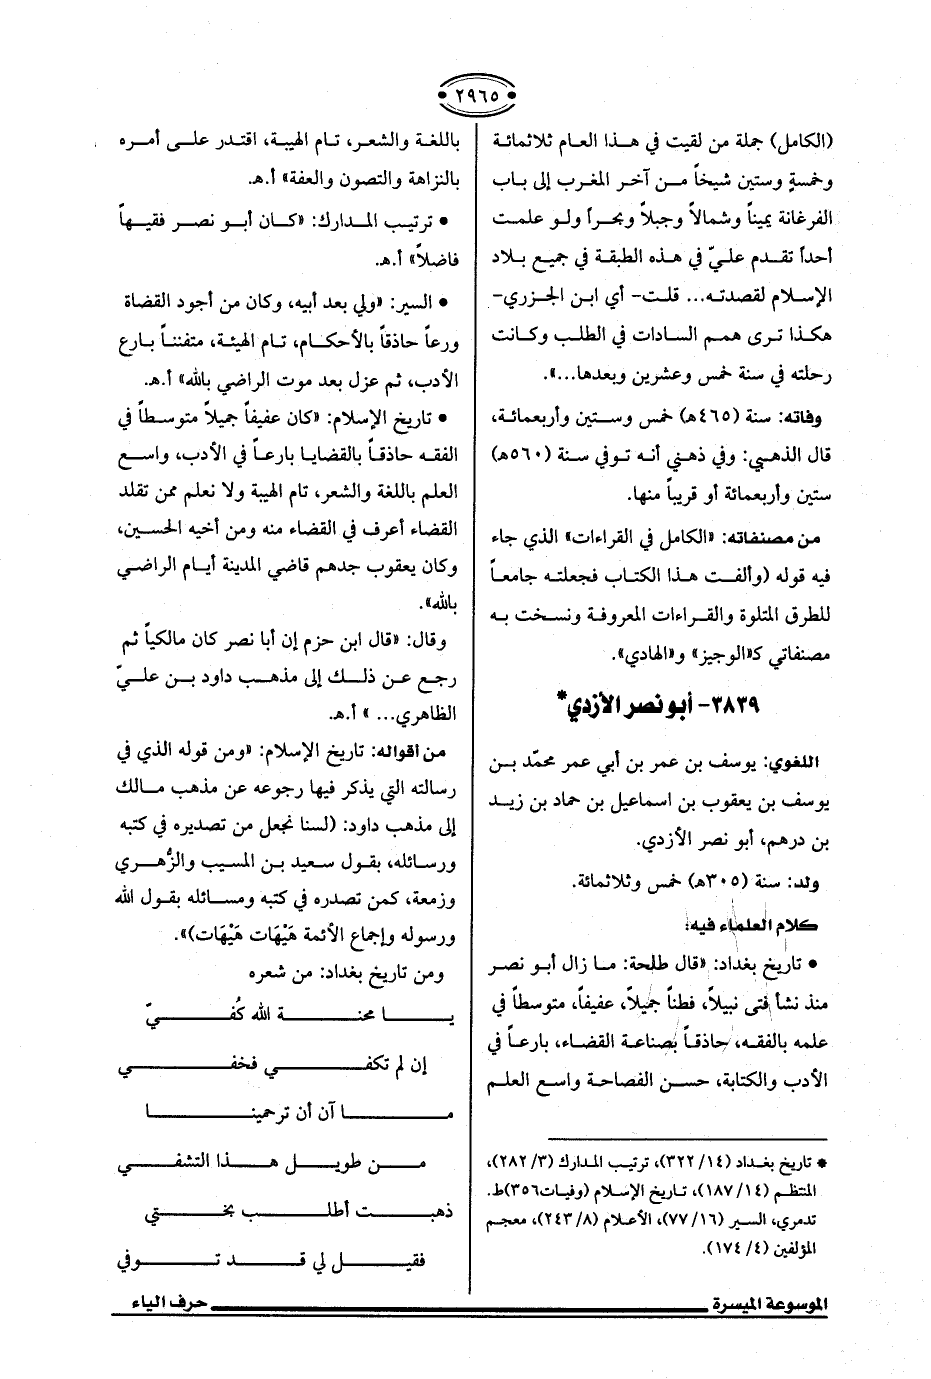 ٢٩٦٥
(الكامل) جملة من لقيت في هذا العام ثلاثمائة
وخمسةٍ وستين شيخاً من آخر المغرب إلى باب
الفرغانة يميناً وشمالاً وجبلاً وبحراً ولو علمت
أحداً تقدم عليّ في هذه الطبقة في جميع بلاد
الإسلام لقصدته... قلت- أي ابن الجزري-
هكذا ترى همم السادات في الطلب وكانت
رحلته في سنة خمس وعشرين وبعدها...».
وفاته: سنة (٤٦٥هـ) خمس وستين وأربعمائة،
قال الذهبي: وفي ذهني أنه توفي سنة (٥٦٠هـ)
ستين وأربعمائة أو قريباً منها.
من مصنفاته: «الكامل في القراءات» الذي جاء
فيه قوله (وألفت هذا الكتاب فجعلته جامعاً
للطرق المتلوة والقراءات المعروفة ونسخت به
مصنفاتي كـ«الوجيز» و«الهادي».
٣٨٣٩- أبو نصر الأزدي*
اللغوي: يوسف بن عمر بن أبي عمر محمّد بن
يوسف بن يعقوب بن اسماعيل بن حماد بن زيد
بن درهم، أبو نصر الأزدي.
ولد: سنة (٣٠٥هـ) خمس وثلاثمائة.
كلام العلماء فيه:
• تاريخ بغداد: «قال طلحة: ما زال أبو نصر
منذ نشأ فتى نبيلاً، فطناً جميلاً، عفيفاً، متوسطاً في
علمه بالفقه، حاذقاً بصناعة القضاء، بارعاً في
الأدب والكتابة، حسن الفصاحة واسع العلم
* تاريخ بغداد (١٤/ ٣٢٢)، ترتيب المدارك (٣/ ٢٨٢)،
المنتظم (١٤/ ١٨٧)، تاريخ الإسلام (وفيات٣٥٦)ط.
تدمري، السير (١٦/ ٧٧)، الأعلام (٨/ ٢٤٣)، معجم
المؤلفين (٤/ ١٧٤).
باللغة والشعر، تام الهيبة، اقتدر على أمره
بالنزاهة والتصون والعفة» أ.هـ.
• ترتيب المدارك: «كان أبو نصر فقيهاً
فاضلاً» أ.هـ.
• السير: «ولي بعد أبيه، وكان من أجود القضاة
ورعاً حاذقاً بالأحكام، تام الهيئة، متفنناً بارع
الأدب، ثم عزل بعد موت الراضي بالله» أ.هـ.
• تاريخ الإسلام: «كان عفيفاً جميلاً متوسطاً في
الفقه حاذقاً بالقضايا بارعاً في الأدب، واسع
العلم باللغة والشعر، تام الهيبة ولا نعلم ممن تقلد
القضاء أعرف في القضاء منه ومن أخيه الحسين،
وكان يعقوب جدهم قاضي المدينة أيام الراضي
بالله».
وقال: «قال ابن حزم إن أبا نصر كان مالكياً ثم
رجع عن ذلك إلى مذهب داود بن عليّ
الظاهري... » أ.هـ.
من أقواله: تاريخ الإسلام: «ومن قوله الذي في
رسالته التي يذكر فيها رجوعه عن مذهب مالك
إلى مذهب داود: (لسنا نجعل من تصديره في كتبه
ورسائله، بقول سعيد بن المسيب والزُّهري
وزمعة، كمن تصدره في كتبه ومسائله بقول الله
ورسوله وإجماع الأئمة هَيْهَات هَيْهَات)».
ومن تاريخ بغداد: من شعره
يا محنة الله كُفيّ
إن لم تكفي فخفي
ما آن أن ترحمينا
من طويل هذا التشفي
ذهبت أطلب بختي
فقيل لي قد توفي
الموسوعة الميسرة
حرف الياء